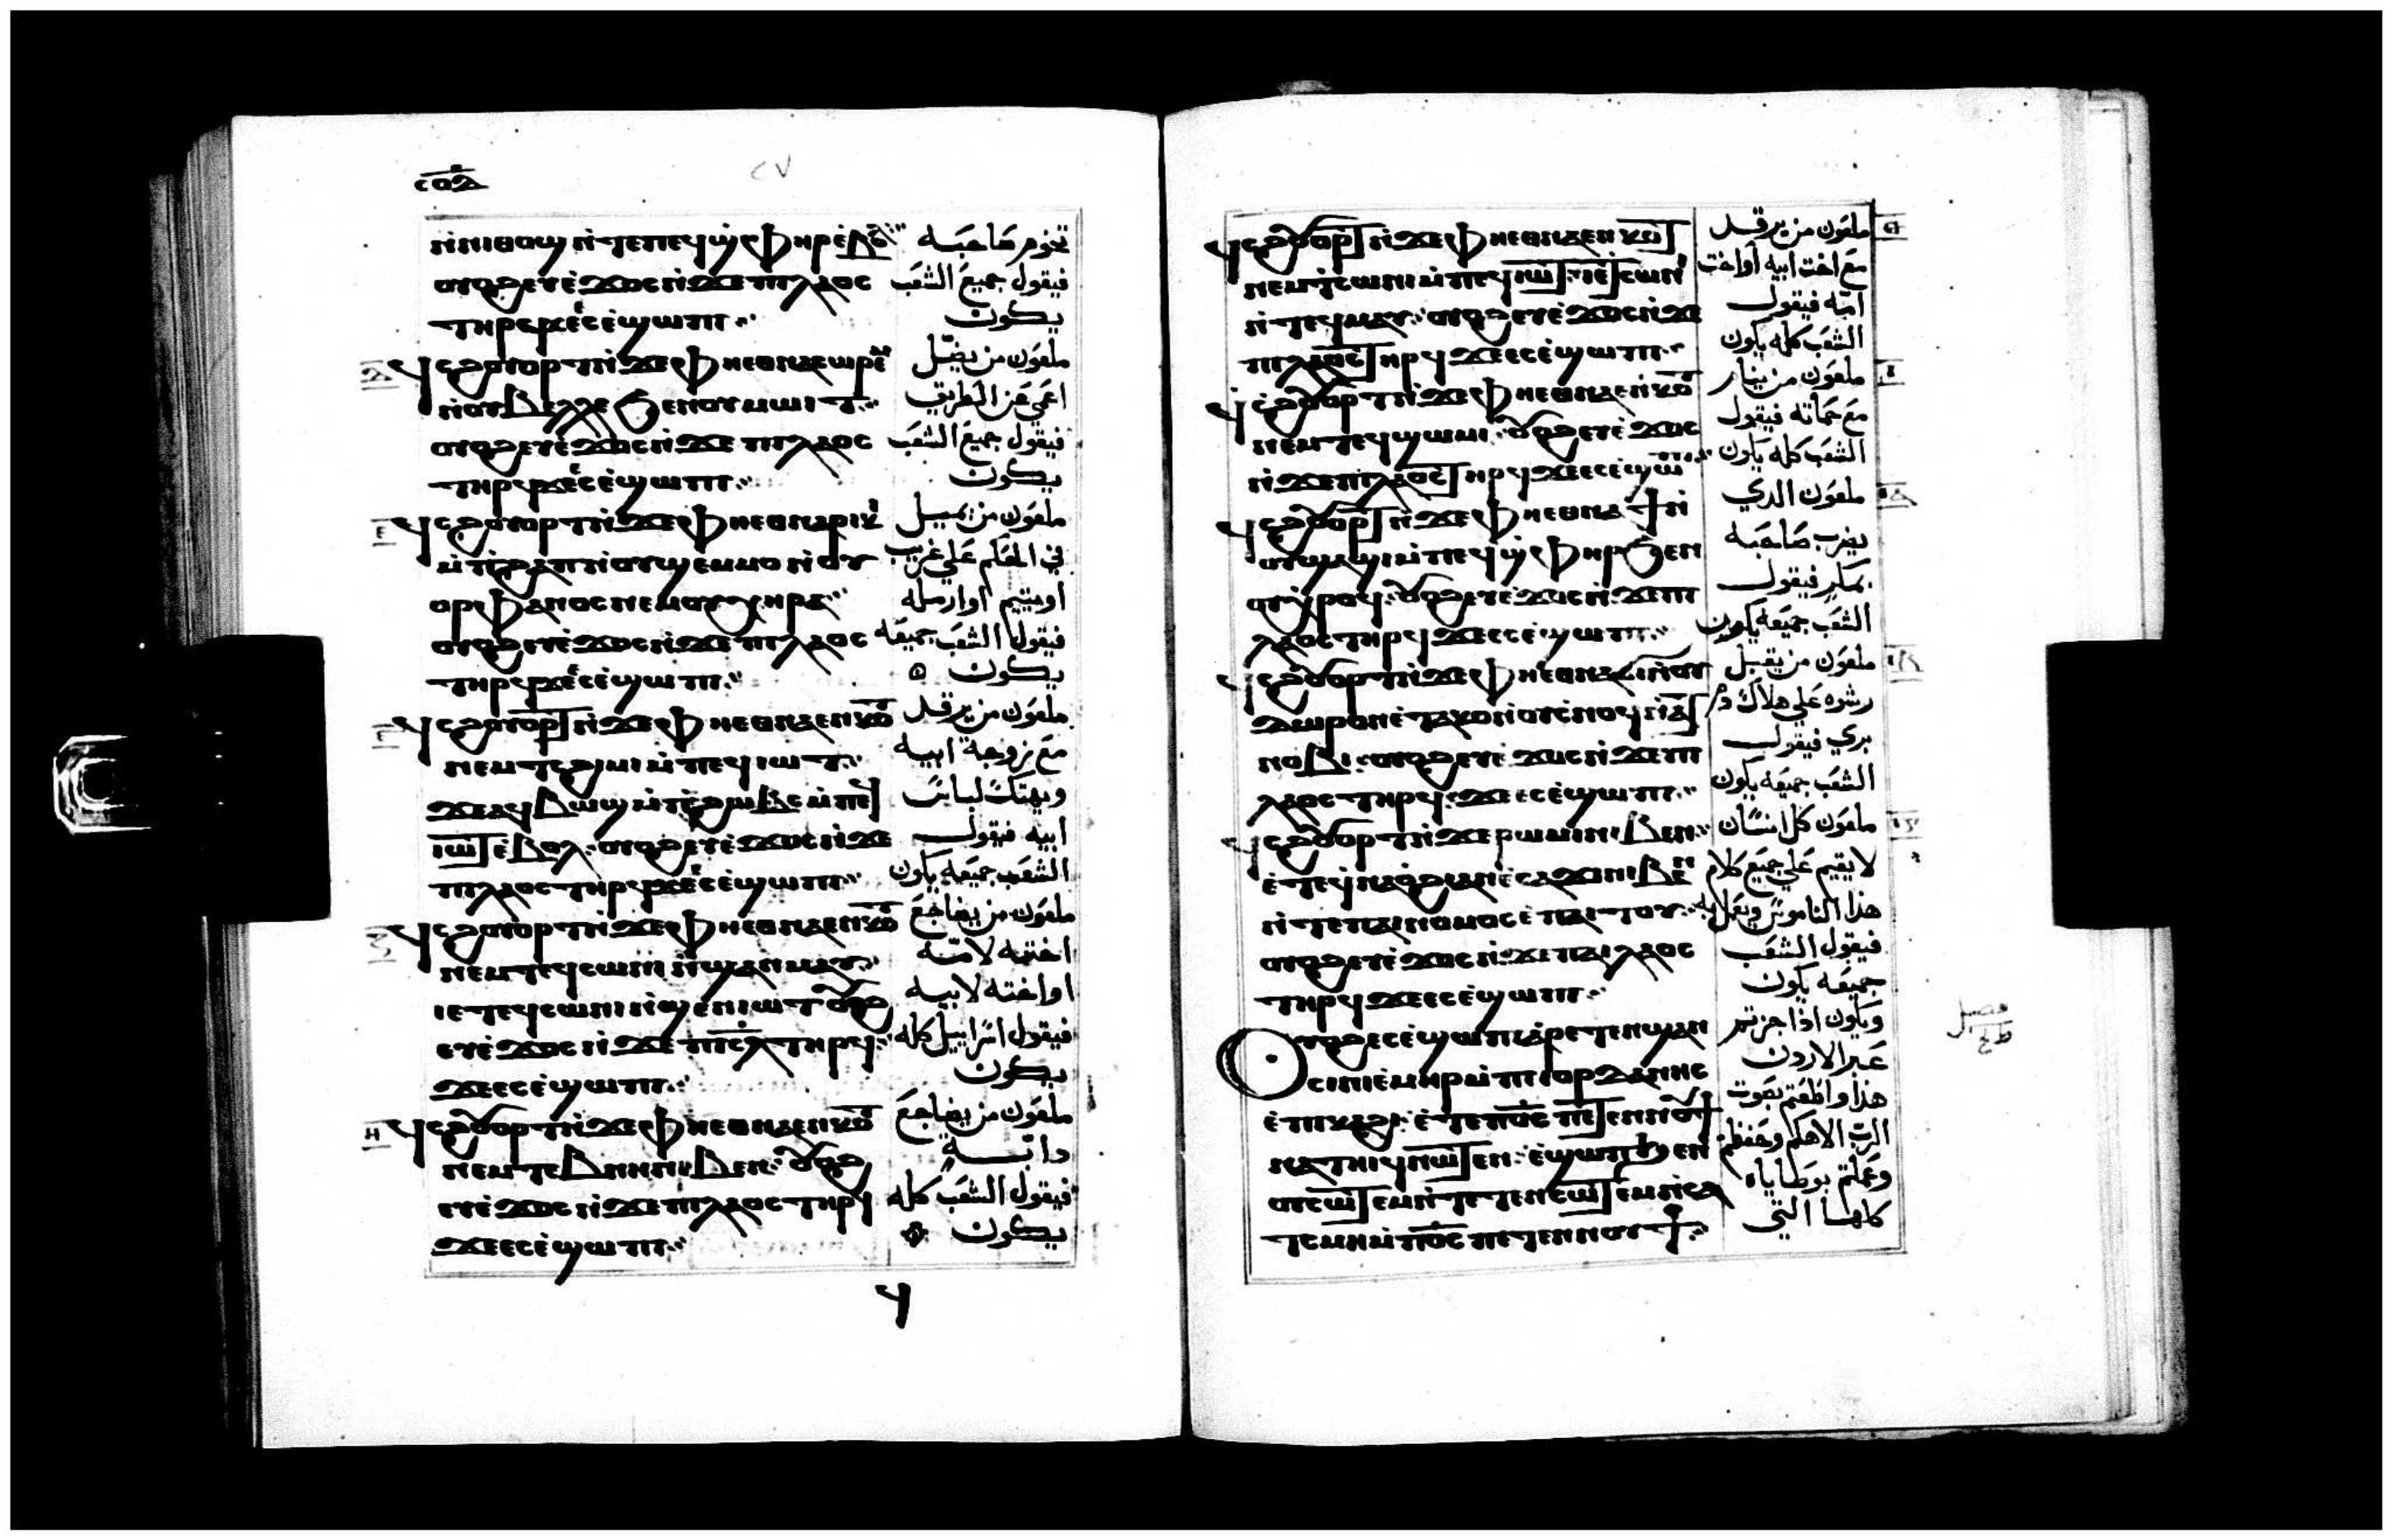 ⲥⲟⲇ
ⲛ̀ⲛⲓⲑⲱϣ ⲛ̀ⲧⲉⲡⲉϥϣ̀ⲫⲏⲣ ⲉ̀ⲃⲟⲗ
ⲟⲩⲟϩ ⲉⲩⲉ̀ϫⲟⲥ ⲛ̀ϫⲉ ⲡⲓⲗⲁⲟⲥ
ⲧⲏⲣϥ ϫⲉ ⲉⲥⲉ̀ϣⲱⲡⲓ
ϥⲥϩⲟⲩⲟⲣⲧ ⲛ̀ϫⲉ ⲫⲏⲉⲑⲛⲁⲥⲱⲣⲉⲙ
ⲛ̀ⲟⲩⲃⲉⲗⲗⲉ ϧⲉⲛⲟⲩⲙⲱⲓⲧ
ⲟⲩⲟϩ ⲉⲩⲉ̀ϫⲟⲥ ⲛ̀ϫⲉ ⲡⲓⲗⲁⲟⲥ
ⲧⲏⲣϥ ϫⲉ ⲉⲥⲉ̀ϣⲱⲡⲓ
ϥⲥϩⲟⲩⲟⲣⲧ ⲛ̀ϫⲉ ⲫⲏⲉⲑⲛⲁⲣⲓⲕⲓ
ⲙ̀ⲡ̀ϩⲁⲡ ⲛ̀ⲟⲩϣⲉⲙⲙⲟ ⲛ̀ⲟⲩ
ⲟⲣⲫⲁⲛⲟⲥ ⲛⲉⲙⲟⲩⲭⲏⲣⲁ
ⲟⲩⲟϩ ⲉⲩⲉ̀ϫⲟⲥ ⲛ̀ϫⲉ ⲡⲓⲗⲁⲟⲥ
ⲧⲏⲣϥ ϫⲉ ⲉⲥⲉ̀ϣⲱⲡⲓ
ϥⲥϩⲟⲩⲟⲣⲧ ⲛ̀ϫⲉ ⲫⲏⲉⲑⲛⲁⲉⲛⲕⲟⲧ
ⲛⲉⲙⲧ̀ⲥϩⲓⲙⲓ ⲙ̀ⲡⲉϥⲓⲱⲧ
ϫⲉ ⲁϥⲃⲱϣ ⲙ̀ⲡ̀ϩⲱⲃⲥ ⲙ̀ⲡⲉϥ
ⲓⲱⲧ ⲉ̀ⲃⲟⲗ ⲟⲩⲟϩ ⲉⲩⲉ̀ϫⲟⲥ ⲛ̀ϫⲉ
ⲡⲓⲗⲁⲟⲥ ⲧⲏⲣϥ ϫⲉ ⲉⲥⲉ̀ϣⲱⲡⲓ
ϥⲥϩⲟⲩⲟⲣⲧ ⲛ̀ϫⲉ ⲫⲏⲉⲑⲛⲁⲉⲛⲕⲟⲧ
ⲛⲉⲙⲧⲉϥⲥⲱⲛⲓ ⲛ̀ϣⲁⲛⲙⲁⲩ
ⲓⲉ ⲧⲉϥⲥⲱⲛⲓ ⲛ̀ϣⲉⲛⲓⲱⲧ ⲟⲩⲟϩ
ⲉⲩⲉ̀ϫⲟⲥ ⲛ̀ϫⲉ ⲡⲓⲥⲗ ⲧⲏⲣϥ
ϫⲉ ⲉⲥⲉ̀ϣⲱⲡⲓ
ϥⲥϩⲟⲩⲟⲣⲧ ⲛ̀ϫⲉ ⲫⲏⲉⲑⲛⲁⲉⲛⲕⲟⲧ
ⲛⲉⲙⲧⲉⲃⲛⲏ ⲛⲓⲃⲉⲛ ⲟⲩⲟϩ
ⲉⲩⲉ̀ϫⲟⲥ ⲛ̀ϫⲉ ⲡⲓⲗⲁⲟⲥ ⲧⲏⲣϥ
ϫⲉ ⲉⲥⲉ̀ϣⲱⲡⲓ
تخوم صاحبه
فيقول جميع الشعب
يكون
ملعون من يضل
اعمي عن الطريق
فيقول جميع الشعب
يكون
ملعون من يميل
في الحكم علي غريب
او يتيم او ارملة
فيقول الشعب جميعه
يكون
ملعون من يرقد
مع زوجة ابيه
ويهتك لباس
ابيه فيقول
الشعب جميعه يكون
ملعون من يضاجع
اخته لامه
او اخته لابيه
فيقول اسراييل كله
يكون
ملعون من يضاجع
دابة
فيقول الشعب كله
يكون
ϥ
ϥⲥϩⲟⲩⲟⲣⲧ ⲛ̀ϫⲉ ⲫⲏⲉⲑⲛⲁⲉⲛⲕⲟⲧ
ⲛⲉⲙⲧ̀ⲥⲱⲛⲓ ⲙ̀ⲡⲉϥⲓⲱⲧ ⲓⲉ ⲧ̀ⲥⲱⲛⲓ
ⲛ̀ⲧⲉϥⲙⲁⲩ ⲟⲩⲟϩ ⲉⲩⲉ̀ϫⲟⲥ ⲛ̀ϫⲉ
ⲡⲓⲗⲁⲟⲥ ⲧⲏⲣϥ ϫⲉ ⲉⲥⲉ̀ϣⲱⲡⲓ
ϥⲥϩⲟⲩⲟⲣⲧ ⲛ̀ϫⲉ ⲫⲏⲉⲑⲛⲁⲉⲛⲕⲟⲧ
ⲛⲉⲙⲧⲉϥϣⲱⲙⲓ ⲟⲩⲟϩ ⲉⲩⲉ̀ϫⲟⲥ
ⲛ̀ϫⲉ ⲡⲓⲗⲁⲟⲥ ⲧⲏⲣϥ ϫⲉ ⲉⲥⲉ̀ϣⲱⲡⲓ
ϥⲥϩⲟⲩⲟⲣⲧ ⲛ̀ϫⲉ ⲫⲏⲉⲑⲛⲁϯ ⲛ̀
ⲟⲩϣⲁϣⲓ ⲙ̀ⲡⲉϥϣ̀ⲫⲏⲣ ϧⲉⲛ
ⲟⲩⲭ̀ⲣⲟϥ ⲟⲩⲟϩ ⲉⲩⲉ̀ϫⲟⲥ ⲛ̀ϫⲉ ⲡⲓ
ⲗⲁⲟⲥ ⲧⲏⲣϥ ϫⲉ ⲉⲥⲉ̀ϣⲱⲡⲓ
ϥⲥϩⲟⲩⲟⲣⲧ ⲛ̀ϫⲉ ⲫⲏⲉⲑⲛⲁϭⲓ ⲛ̀ⲟⲩ
ⲇⲱⲣⲟⲛ ⲉ̀ⲧⲁⲕⲟ ⲛ̀ⲟⲩⲥ̀ⲛⲟϥ ⲛ̀ⲁⲧ
ⲛⲟⲃⲓ ⲟⲩⲟϩ ⲉⲩⲉ̀ϫⲟⲥ ⲛ̀ϫⲉ ⲡⲓ
ⲗⲁⲟⲥ ⲧⲏⲣϥ ϫⲉ ⲉⲥⲉ̀ϣⲱⲡⲓ
ϥⲥϩⲟⲩⲟⲣⲧ ⲛ̀ϫⲉ ⲣⲱⲙⲓ ⲛⲓⲃⲉⲛ
ⲉ̀ⲧⲉⲛ̀ϥⲛⲁⲟ̀ϩⲓ ⲁⲛ ⲉ̀ⲥⲁϫⲓ ⲛⲓⲃⲉⲛ
ⲛ̀ⲧⲉ ⲡⲁⲓⲛⲟⲙⲟⲥ ⲉ̀ⲡⲁⲓⲧⲟⲩ
ⲟⲩⲟϩ ⲉⲩⲉ̀ϫⲟⲥ ⲛ̀ϫⲉ ⲡⲁⲓⲗⲁⲟⲥ
ⲧⲏⲣϥ ϫⲉ ⲉⲥⲉ̀ϣⲱⲡⲓ
ⲟⲩⲟϩ ⲉⲥⲉ̀ϣⲱⲡⲓ ⲁⲣⲉⲧⲉⲛϣⲁⲛ
ⲥⲓⲛⲓ ⲉ̀ⲙⲏⲣ ⲙ̀ⲡⲓⲓⲟⲣⲇⲁⲛⲏⲥ
ⲉ̀ⲡⲓⲕⲁϩⲓ ⲉ̀ⲧⲉ ⲡⲟ̅ⲥ̅ ⲡⲉⲧⲉⲛⲛⲟⲩϯ
ⲛⲁⲧⲏⲓϥ ⲛⲱⲧⲉⲛ ⲉ̀ϣⲱⲡ ϧⲉⲛ
ⲟⲩⲥⲱⲧⲉⲙ ⲛ̀ⲧⲉⲧⲉⲛⲥⲱⲧⲉⲙ ⲛ̀ⲥⲁ
ⲧ̀ⲥⲙⲏ ⲙ̀ⲡⲟ̅ⲥ̅ ⲡⲉⲧⲉⲛⲛⲟⲩϯ
ملعون من يرقد
مع اخت ابيه او اخت
امه فيقول
الشعب كله يكون
ملعون من ينام
مع حماته فيقول
الشعب كله يكون
ملعون الدي
يضرب صاحبه
بمكر فيقول
الشعب جميعه يكون
ملعون من يقبل
رشوه علي هلاك دم
بري فيقول
الشعب جميعه يكون
ملعون كل انسان
لا يقيم علي جميع كلام
هذا الناموس ويعمل به
فيقول الشعب
جميعه يكون
ويكون اذا جزتم
عبر الاردن
هذا واطعتم بصوت
الرب الاهكم وحفظتم
وعملتم بوصاياه
كلها التي
فصل